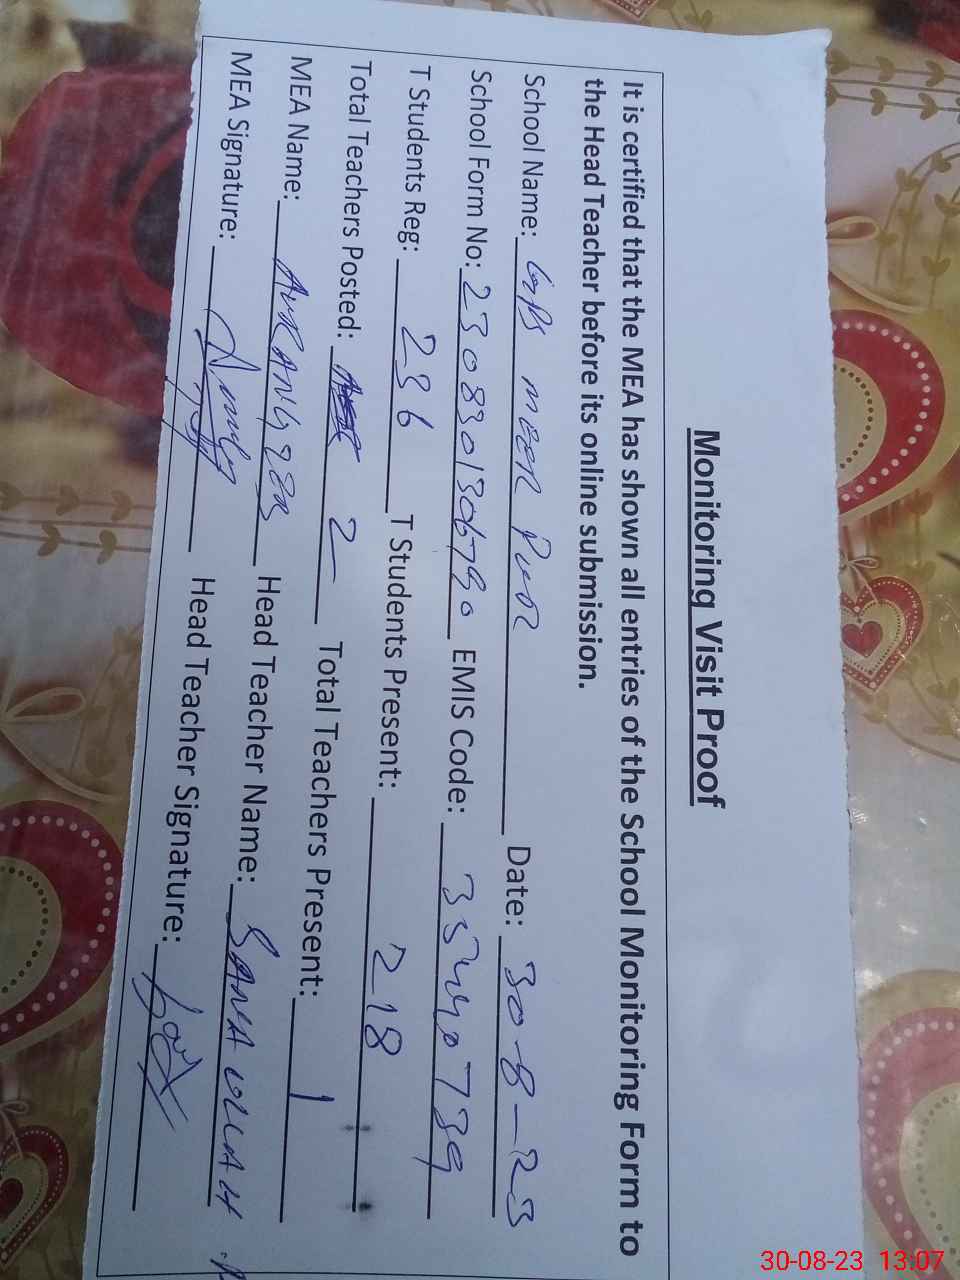 Monitoring Visit Proof
It is certified that the MEA has shown all entries of the School Monitoring Form to
the Head Teacher before its online submission.
School Name: GPS MEER PUR Date: 30-8-23
School Form No: 2308301306790 EMIS Code: 35440739
T Students Reg: 236 T Students Present: 218
Total Teachers Posted: 2 Total Teachers Present: 1
MEA Name: AURANGZEB Head Teacher Name: SANA ULLAH
MEA Signature: Head Teacher Signature:
30-08-23 13:07